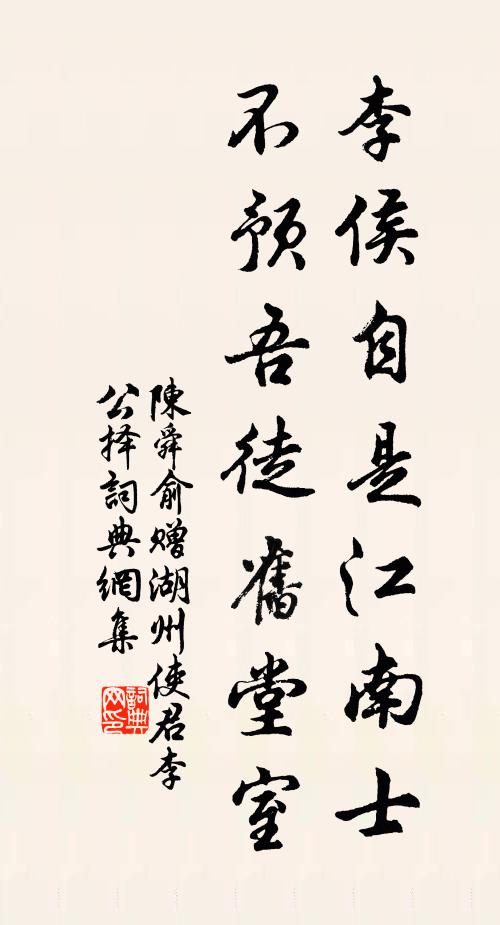 李侯自是江南士
不預吾徒舊堂室
陳舜俞贈湖州使君李
公择詞典網集
詞典网印